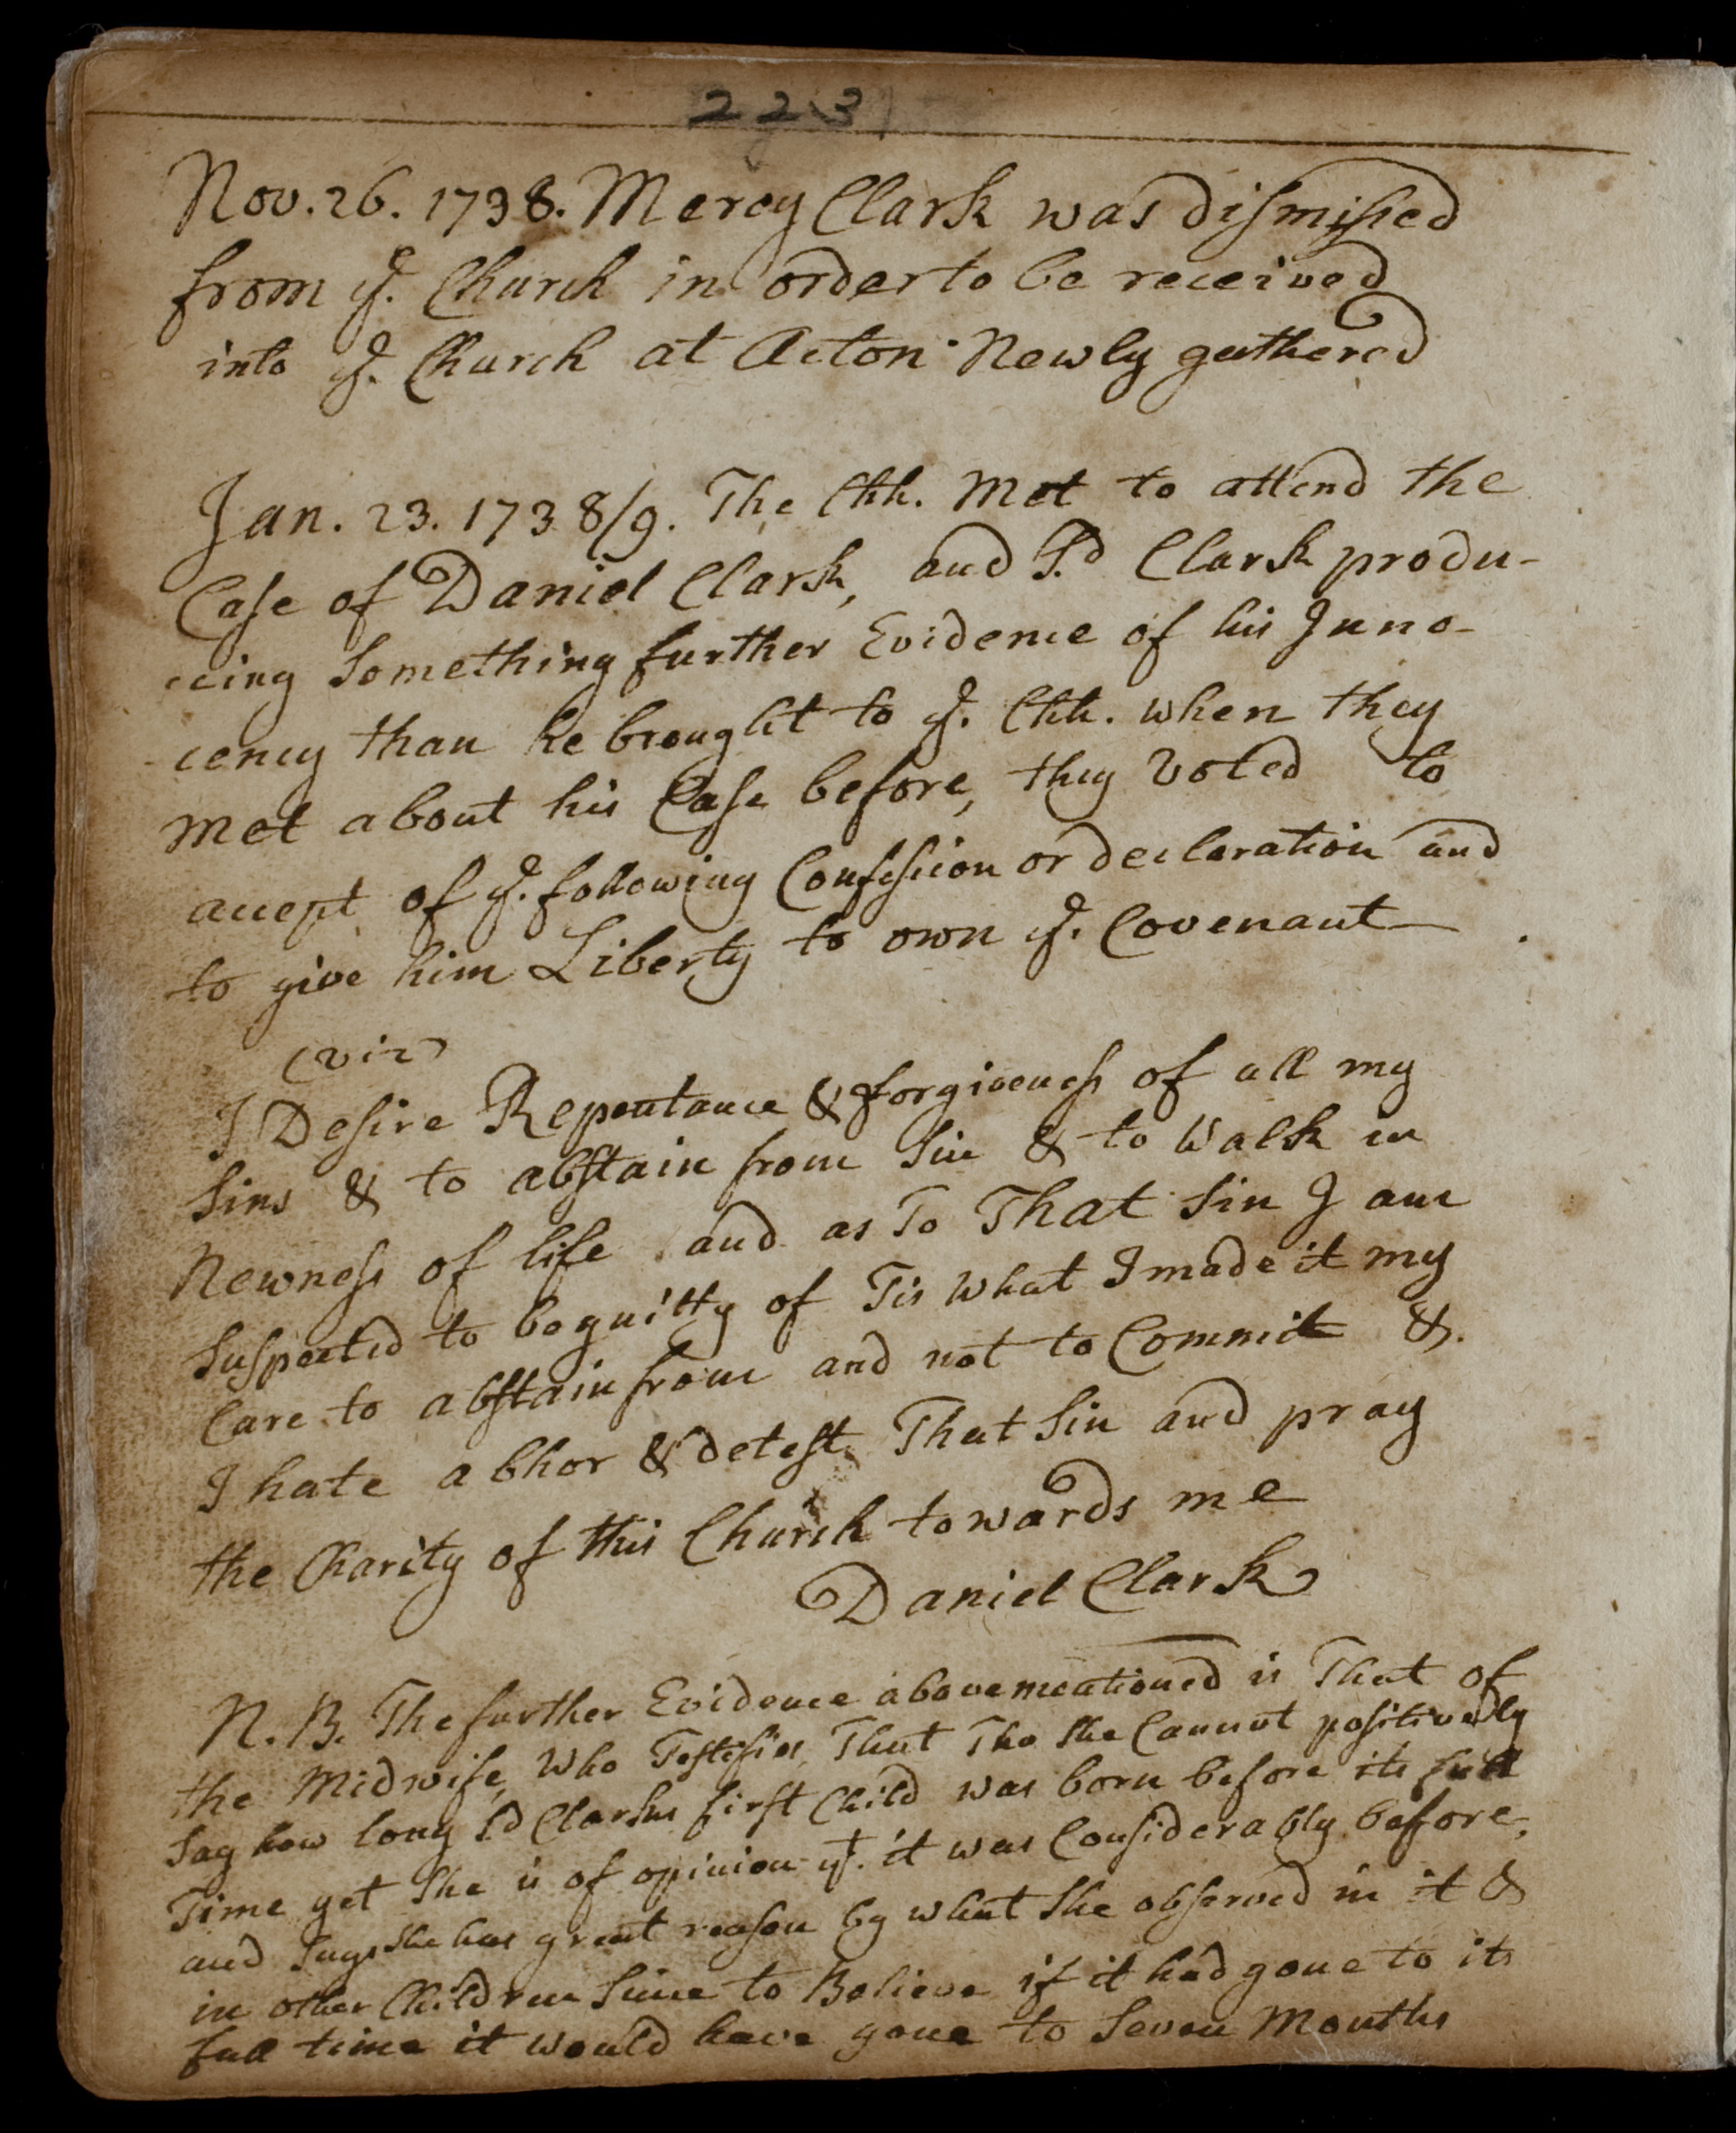 223
Nov. 26. 1738. Mercy Clark was dismissed
from ye. Church in order to be received
into ye. Church at Acton Newly gathered
Jan. 23. 1738/9. The Chh. Met to attend the
Case of Daniel Clark, and Sd. Clark produ-
cing Something further Evidence of his Inno-
cency than he brought to ye. Chh. when they
Met about his Case before, they Voted to
accept of ye. following Confession or declaration and
to give him Liberty to own ye. Covenant
(viz)
I Desire Repentance & forgiveness of all my
Sins & to abstain from Sin & to Walk in
Newness of life and as To That Sin I am
Suspected to be guilty of Tis What I made it my
Care to abstain from and not to Commit &.
I hate abhor & detest That Sin and pray
the Charity of this Church towards me
Daniel Clark
N. B. The further Evidence abovementioned is That of
the Midwife, Who Testifies That Tho She Cannot positively
Say how long Sd Clarks first Child was born before its full
Time yet She is of opinion yt. it was Considerably before,
and Says She has great reason by what She observed in it &
in other Children Since to Believe if it had gone to its
full time it would have gone to Seven Months